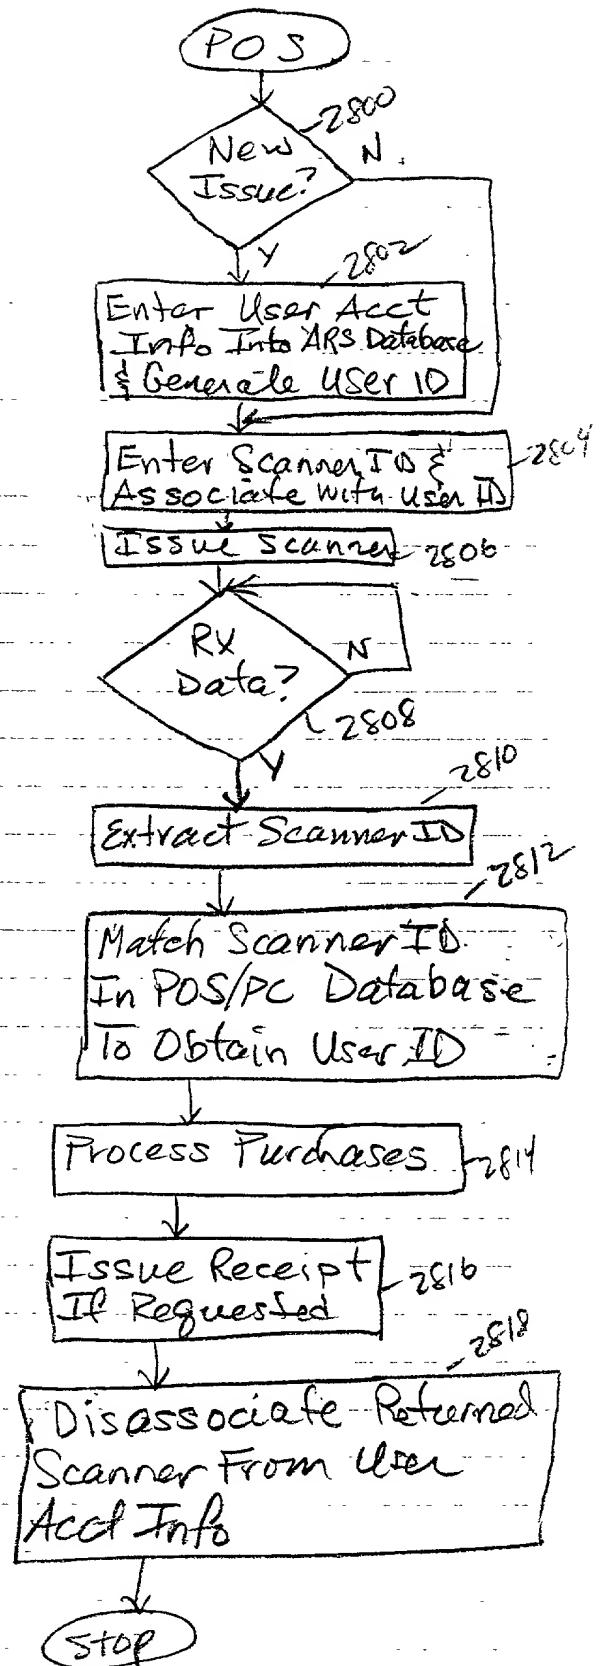 POS
2800
New
Issue?
N
Y
2802
Enter User Acct
Info Into ARS Database
& Generate User ID
Enter Scanner ID &
Associate with User ID
2804
Issue Scanner
2806
RX
Data?
N
2808
Y
2810
Extract Scanner ID
2812
Match Scanner ID
In POS/PC Database
To Obtain User ID
Process Purchases
2814
Issue Receipt
If Requested
2816
2818
Disassociate Returned
Scanner From User
Acct Info
Stop